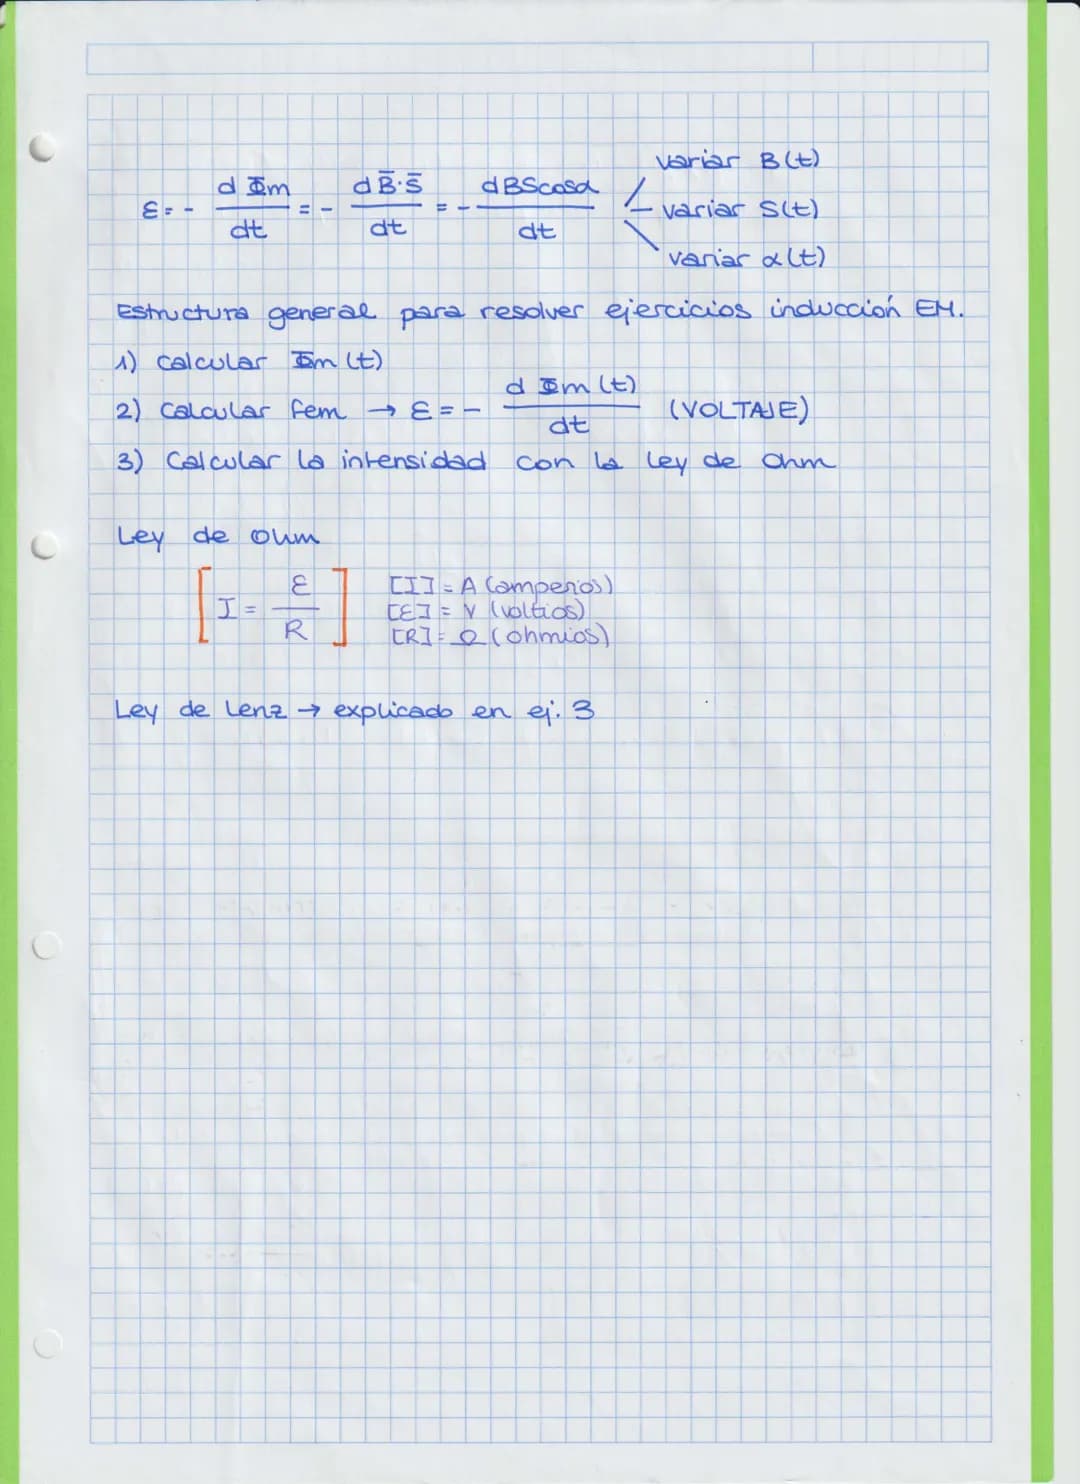 ε = - d Φm / dt = - d B̄·S̄ / dt = - d BScosα / dt
variar B(t)
variar S(t)
variar α(t)
Estructura general para resolver ejercicios inducción EM.
1) Calcular Φm (t)
2) Calcular fem → ε = - d Φm (t) / dt (VOLTAJE)
3) Calcular la intensidad con la ley de Ohm
Ley de Ohm
[ I = ε / R ]
[I] = A (amperios)
[ε] = V (voltios)
[R] = Ω (ohmios)
Ley de Lenz → explicado en ej. 3